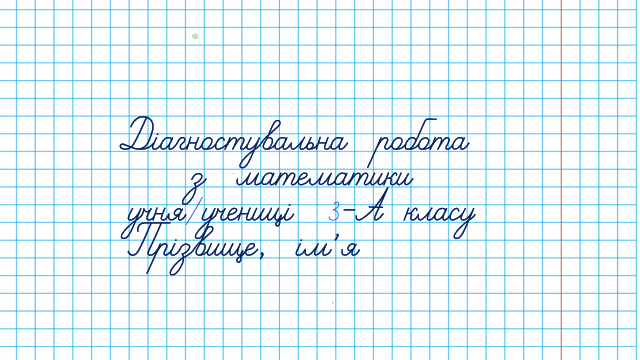 Діагностувальна робота
з математики
учня/учениці 3-А класу
Прізвище, ім’я